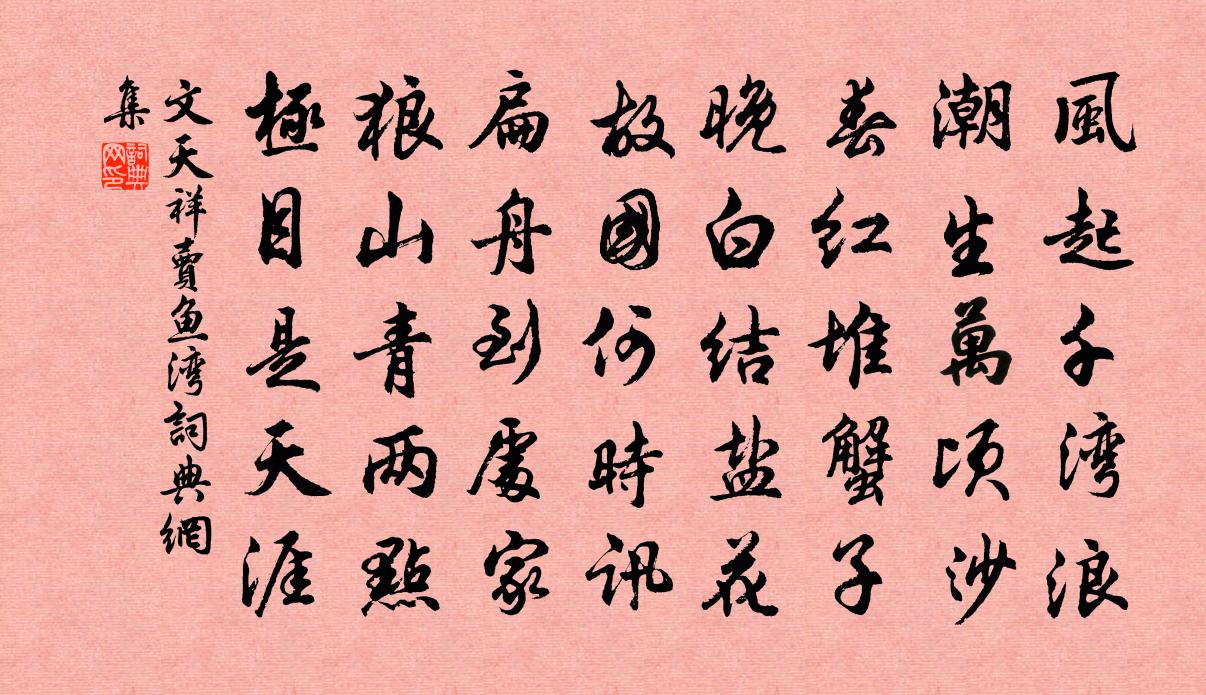 風起千湾浪
潮生萬顷沙
春红堆蟹子
晚白结盐花
故國何時訊
扁舟到處家
狼山青两點
極目是天涯
文天祥賣鱼湾詞典網
集
詞典
网印